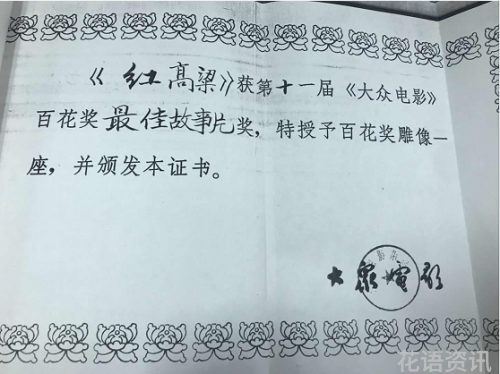 《红高粱》获第十一届《大众电影》
百花奖最佳故事片奖，特授予百花奖雕像一
座，并颁发本证书。
大众电影
花语资讯